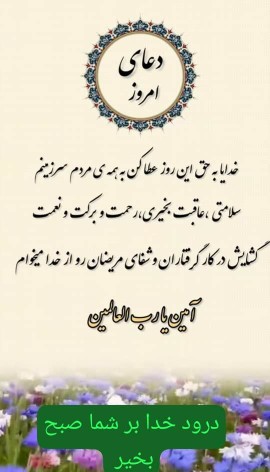 دعای
امروز
خدایا به حق این روز عطا کن به همه ی مردم سرزمینم
سلامتی ،عاقبت بخیری، رحمت و برکت و نعمت
گشایش در کار گرفتاران و شفای مریضان رو از خدا میخوام
آمین یا رب العالمین
درود خدا بر شما صبح
بخیر